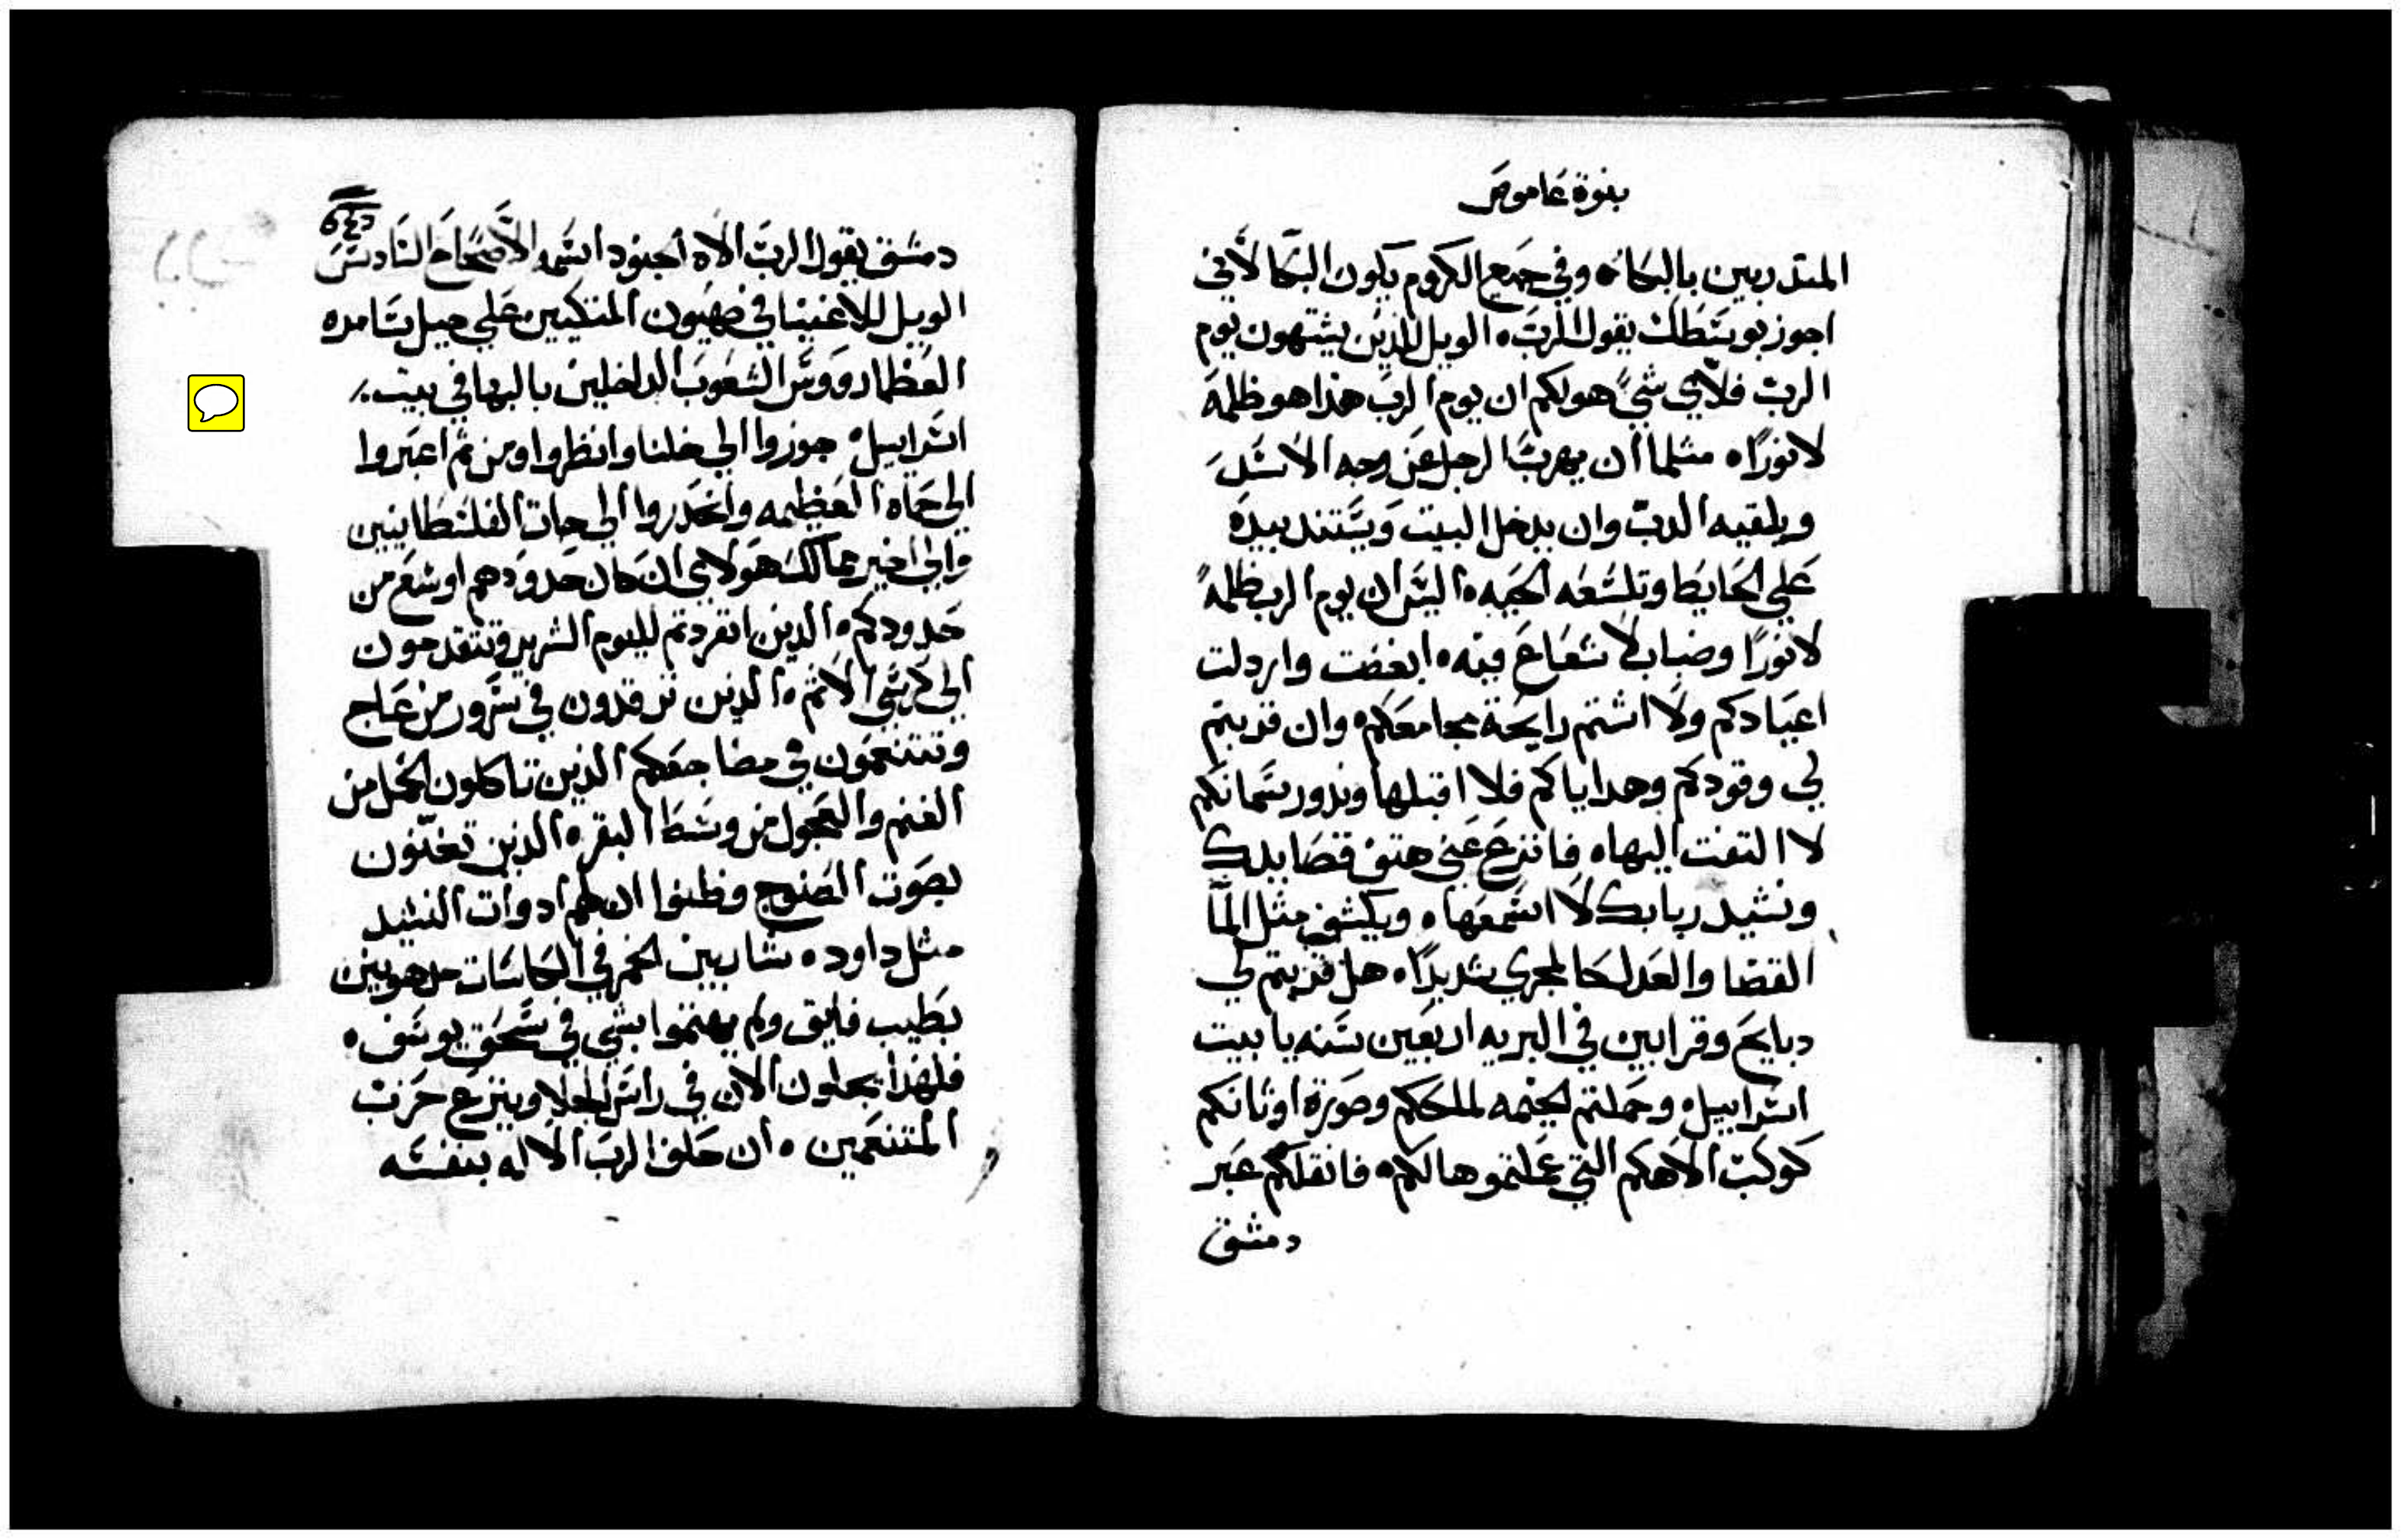 بنوة عاموص
المتدربين بالبكاء ه وفي جميع الكروم يكون البكا لأني
اجوز بوسطك يقول الرب ه الويل للذين يشتهون يوم
الرب فلأي شي هولكم ان يوم الرب هذا هو ظلمة
لا نورًا ه مثلما ان يهرب الرجل عن وجه الاسد
ويلقيه الدب وان يدخل البيت ويستند بيده
علي الحايط وتلسعه الحيه ه اليس ان يوم الرب ظلمةً
لا نورًا وضباب لا شعاع فيه ه ابغضت واردلت
اعيادكم ولا اشتم رايحة مجامعكم ه وان قربتم
لي وقودكم وهداياكم فلا اقبلها وندور سمانكم
لا التفت اليها ه فانزع عني هتف قصايدك
ونشيد ربابك لا اسمعها ه ويكشف مثل الما
القضا والعدل كالمجري شديدًا ه هل قربتم لي
دبايح وقرابين في البريه اربعين سنه يا بيت
اسراييل ه وحملتم الخيمه لملحكم وصورة اوثانكم
كوكب الاهكم التي عملتموها لكم ه فانقلكم عبر
دمشق
دمشق يقول الرب الاه الجنود اسمه الأصحاح السادس
الويل للاغنيا في صهيون المتكيين علي جبل سامره
العظما رووس الشعوب الداخلين بالبها في بيت
اسراييل ه جوزوا الي خلنا وانظروا ومن ثم اعبروا
الي حماه العظيمه وانحدروا الي جات الفلسطانيين
والي اخير ممالك هولاي ان كان حدودهم اوسع من
حدودكم ه الدين انفردتم لليوم الشرير وتتقدمون
الي كرسي الاثم ه الدين ترقدون في سرور من عاج
وتتنعمون في مضاجعكم الدين تاكلون الحمل من
الغنم والعجول من وسط البقر ه الدين تغنون
بصوت الصنوج وظنوا ان لهم ادوات النشيد
مثل داود ه شاربين الخمر في الكاسات مدهونين
بطيب فايق ولم يهتموا بشي في سحق يوسف ه
فلهذا يجلون الان في راس الجلا وينزع حزب
المتنعمين ه ان حلف الرب الاله بنفسه